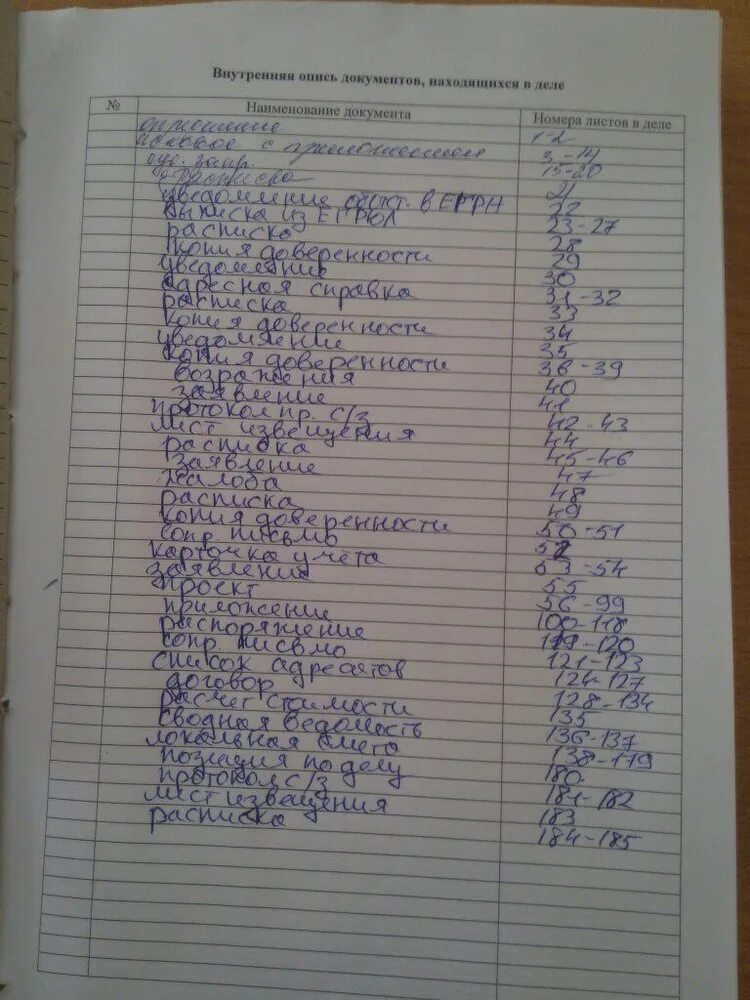 Внутренняя опись документов, находящихся в деле
№ Наименование документа Номера листов в деле
1-2
исковое с приложением 3-14
суд. запр. 15-20
расписка 21
уведомление в ЕГРН 22
выписка из ЕГРЮЛ 23-27
расписка 28
копия доверенности 29
уведомление 30
адресная справка 31-32
расписка 33
копия доверенности 34
уведомление 35
копия доверенности 36-39
возражения 40
заявление 41
протокол пр. с/з 42-43
лист извещения 44
расписка 45-46
заявление 47
жалоба 48
расписка 49
копия доверенности 50-51
сопр. письмо 52
карточка учёта 53-54
заявление 55
проект 56-99
приложение 100-118
распоряжение 119-120
сопр. письмо 121-123
список адресатов 124-127
договор 128-134
расчет стоимости 135
сводная ведомость 136-137
локальная смета 138-179
позиция по делу 180
протокол с/з 181-182
лист извещения 183
расписка 184-185